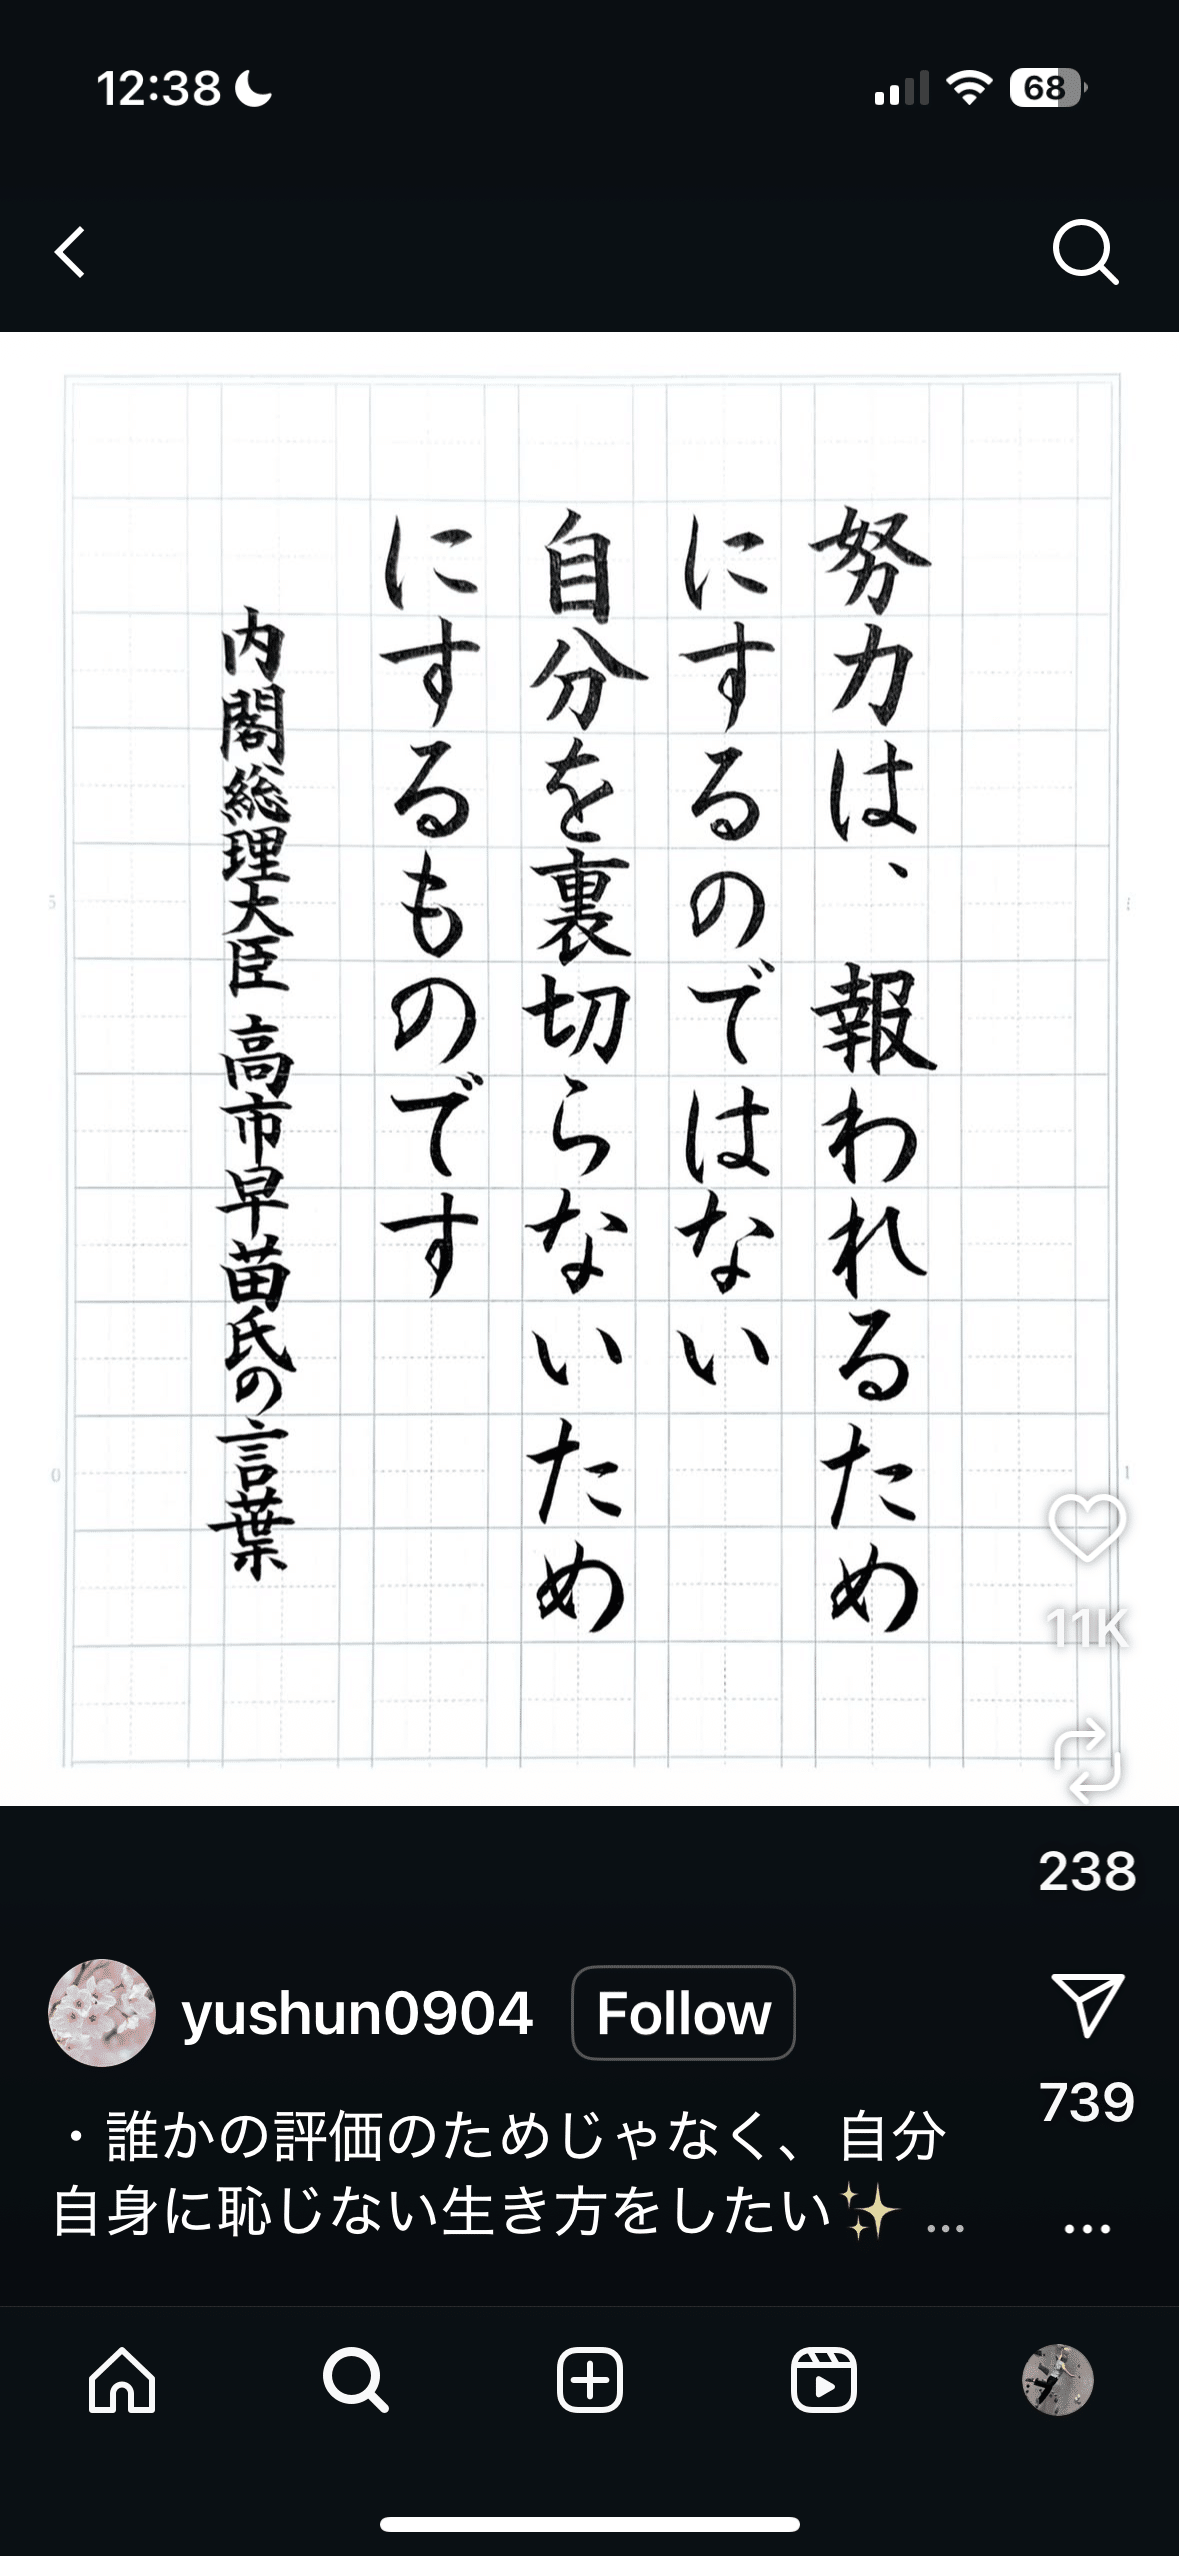 12:38
68
努力は、報われるため
にするのではない
自分を裏切らないため
にするものです
内閣総理大臣 高市早苗氏の言葉
5
0
1
11K
238
yushun0904
Follow
739
・誰かの評価のためじゃなく、自分
自身に恥じない生き方をしたい✨ ...